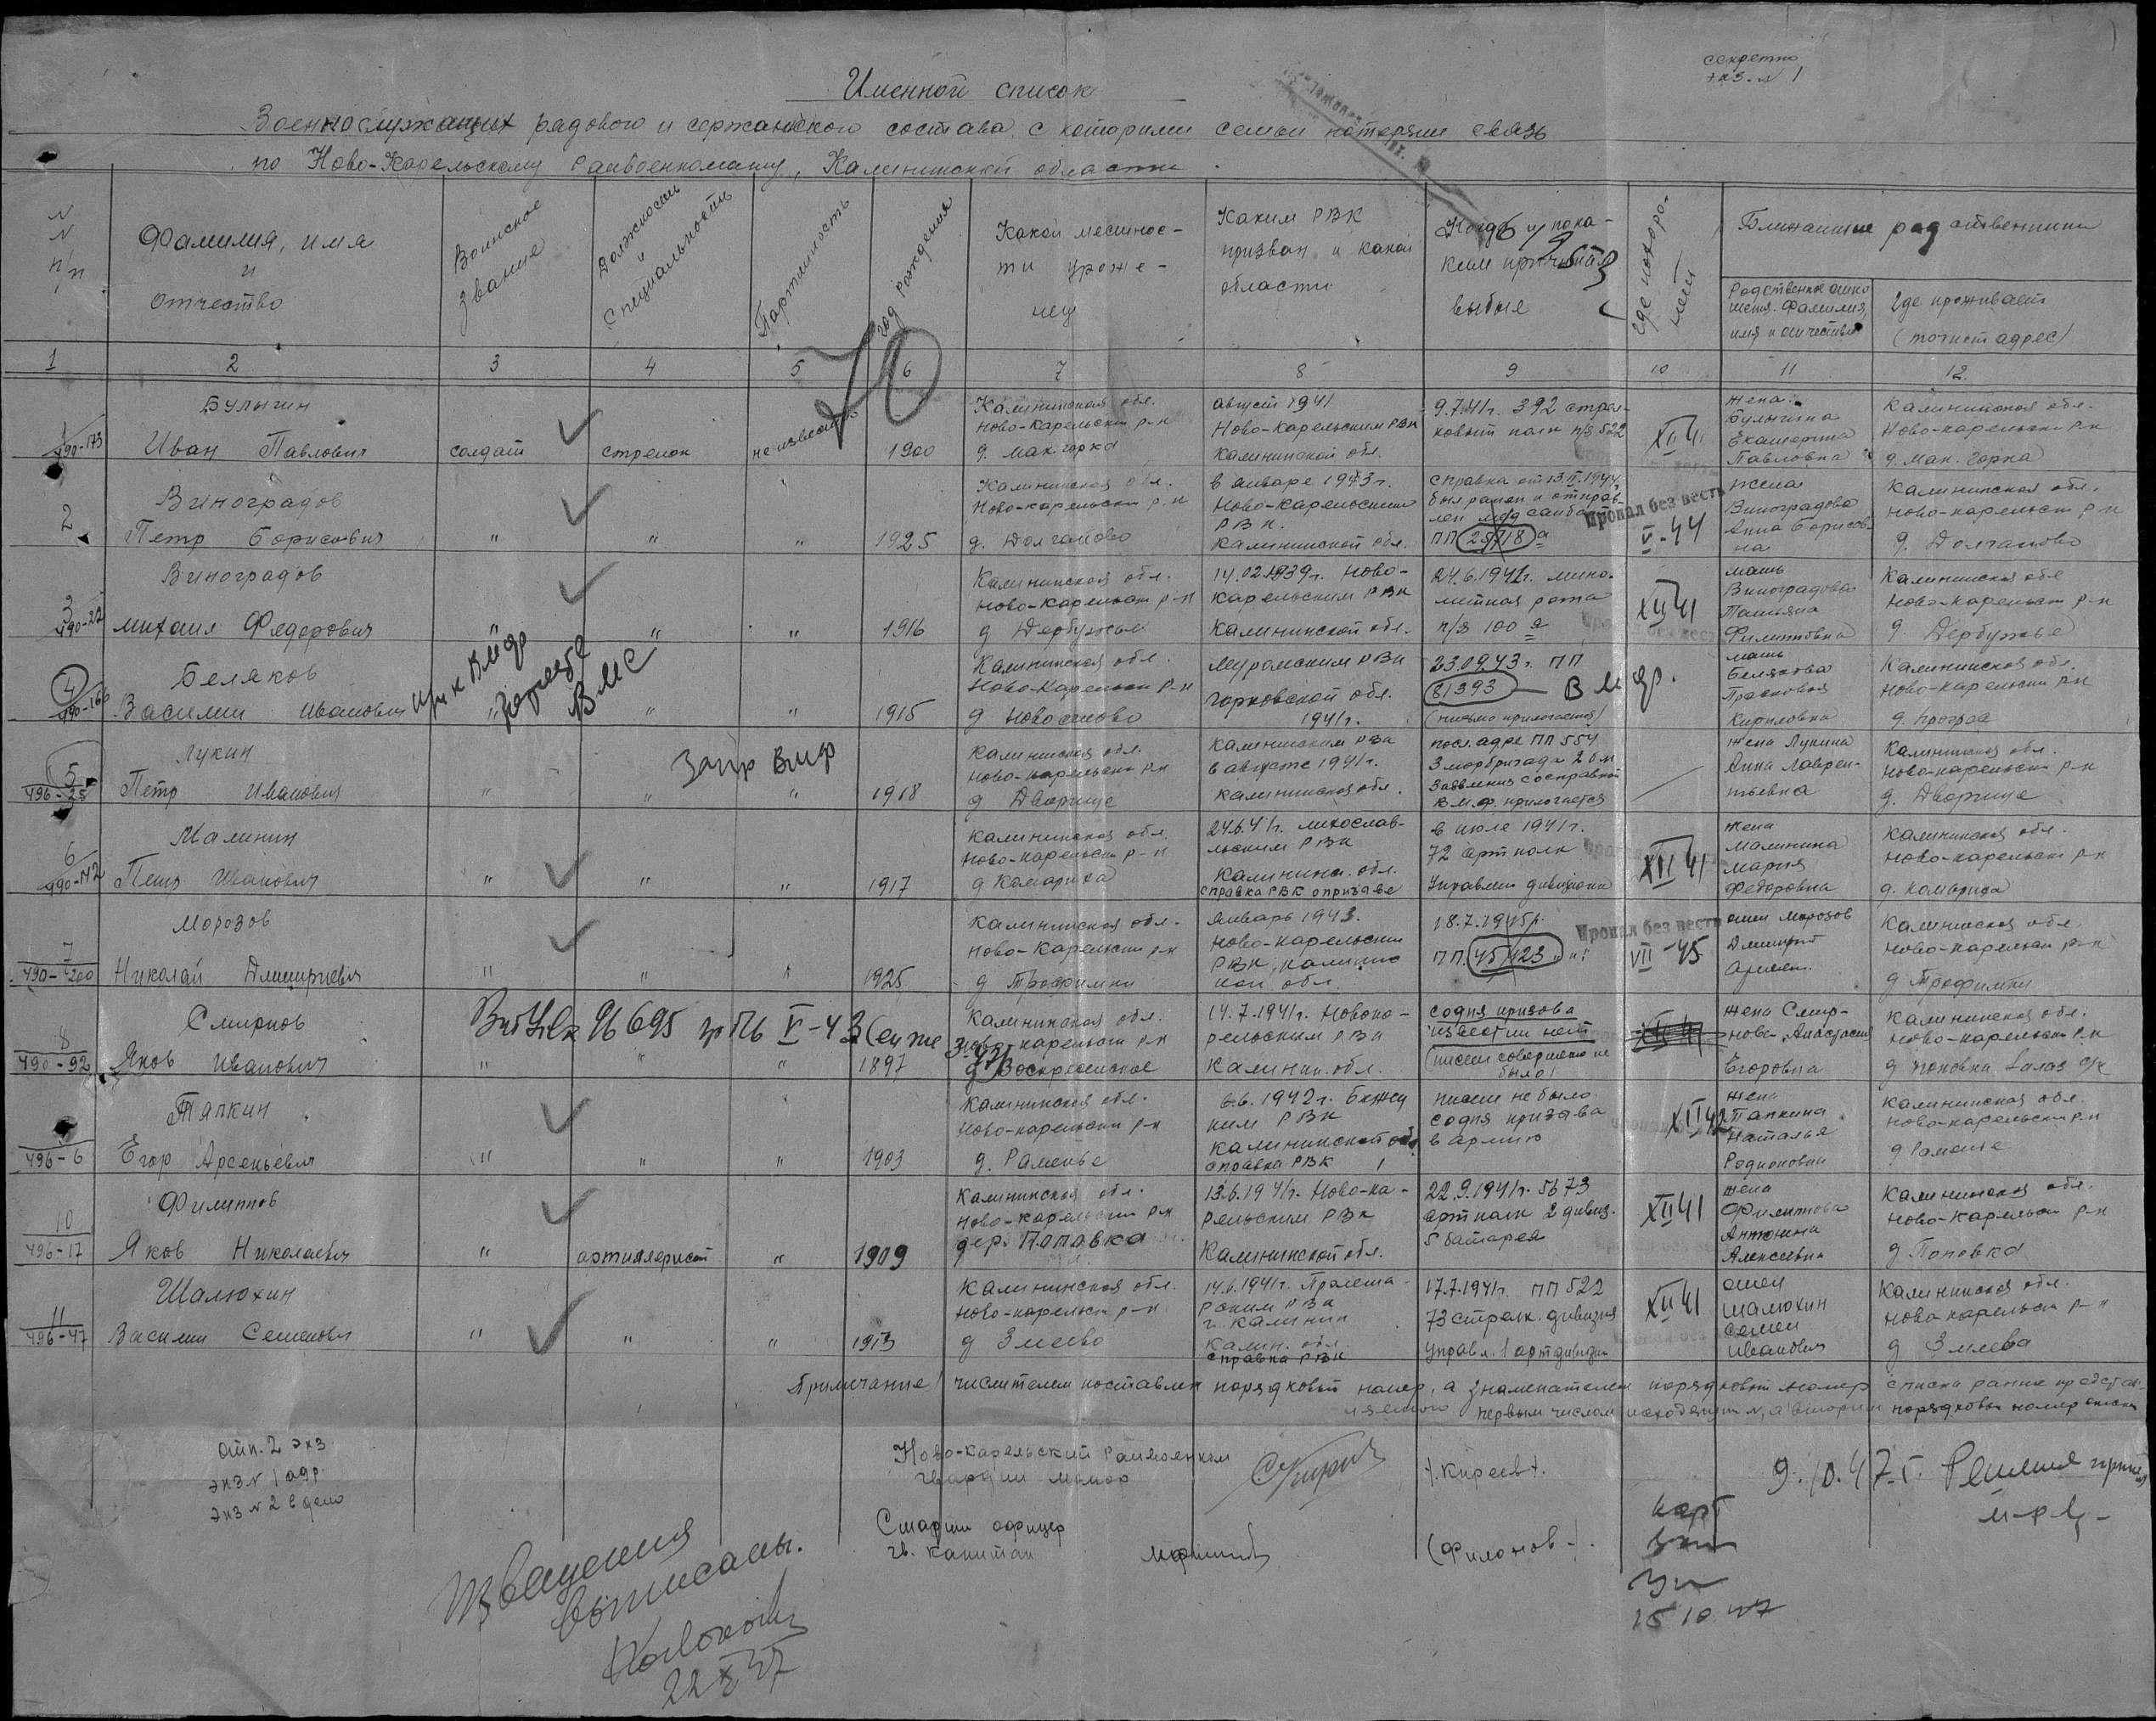 секретно
экз. N 1
Именной список
Военнослужащих рядового и сержанского состава, с которыми семьи потеряли связь
по Ново-Карельскому Райвоенкомату, Калининской области.
N N п/п
Фамилия, имя
и
отчество
Воинское
звание
Должность
и
специальность
Партийность
год рождения
Какой местнос-
ти уроже-
нец
Каким РВК
призван и какой
области
Когда и по ка-
ким причинам
выбыл
где похоро-
нен
Ближайшие родственники
Родственное отно
шения. Фамилия,
имя и отчество
Где проживает
(точный адрес)
1 2 3 4 5 6 7 8 9 10 11 12
70
1
490-173
Булыгин
Иван Павлович
солдат
стрелок
неизвестно
1900
Калининская обл.
Ново-Карельский р-н
д. Мак. горка
август 1941
Ново-Карельским РВК
Калининской обл.
9.7.41г. 392 стрел-
ковый полк п/я 522
XII 41
жена:
Булыгина
Екатерина
Павловна
Калининская обл.
Ново-карельский р-н
д. Мак. Горка
2
Виноградов
Петр Борисович
" " "
1925
Калининская обл.
Ново-карельский р-н
д. Долганово
в январе 1943г.
Ново-Карельским
РВК.
Калининской обл.
справка от 13.V.1944
был ранен и отправ-
лен
ПП 25718 а
Пропал без вести
V-44
жена
Виноградова
Анна Борисов-
на
Калининская обл.
Ново-карельский р-н
д. Долганово
3
490-22
Виноградов
Михаил Федорович
" " "
1916
Калининская обл.
Ново-Карельский р-н
д Дербужье
14.02.1939г. Ново-
карельским РВК
Калининской обл.
24.6.1941г. мино-
метная рота
п/я 100
XII 41
мать
Виноградова
Татьяна
Филипповна
Калининская обл
Ново-карельский р-н
д. Дербужье
4
490-166
Беляков
Василий Иванович
ВМС
" " "
1915
Калининская обл.
Ново-Карельский р-н
д Новосёлово
Муромским РВК
Горьковской обл.
1941г.
23.09.43г. ПП
81393 — ВМФ.
(письмо прилогается)
мать
Белякова
Прасковья
Кирилловна
Калининская обл.
Ново-карельский р-н
5
496-25
Лукин
Петр Иванович
Запр ВМФ
" " "
1918
Калининская обл.
Ново-карельский р-н
д Дворище
Калининским РВК
в августе 1941г.
Калининская обл.
посл. адре ПП 554
3 морбригада 2 б-н
Заявления с справкой
В.М.Ф. прилогается
жена Лукина
Анна Лаврен-
тьевна
Калининская обл.
Ново-карельский р-н
д. Дворище
6
490-142
Малинин
Петр Иванович
" " "
1917
Калининская обл.
Ново-карельский р-н
д Комариха
24.6.41г. лихослав-
льским РВК
Калинин. обл.
справка РВК о призыве
в июле 1941г.
72 арт полк
Управлен дивизиона
XII 41
жена
Малинина
Мария
Федоровна
Калининская обл.
Ново-карельский р-н
д. Комариха
7
490-200
Морозов
Николай Дмитриевич
" " "
1925
Калининская обл.
Ново-карельский р-н
д Трофимки
Январь 1943.
Ново-карельским
РВК, Калининс
кой обл.
18.7.1945г.
ПП 45423
Пропал без вести
VII-45
отец Морозов
Дмитрий
Калининская обл.
Ново-карельский р-н
д Трофимки
8
490-92
Смирнов
Яков Иванович
96695
V-43
" " "
1897
Калининская обл.
Ново-карельский р-н
д Воскресенское
14.7.1941г. Новока-
рельским РВК
Калинин. обл.
со дня призова
известий нет
(писем совершено не
было)
жена Смир-
нова Анастасия
Егоровна
Калининская обл.
Ново-карельский р-н
496-6
Тяпкин
Егор Арсеньевич
" " "
1903
Калининская обл.
Ново-карельский р-н
д. Раменье
6.6.1942г. Бежец
ким РВК
Калининской обл.
справка РВК
писем не было
со дня призыва
в армию
XII 42
жена
Тяпкина
Наталья
Родионовна
Калининская обл.
Ново-карельский р-н
д Раменье
10
496-17
Филиппов
Яков Николаевич
"
артиллерист
"
1909
Калининская обл.
Ново-карельский р-н
дер. Поповка
13.6.1941г. Ново-ка-
рельским РВК
Калининской обл.
22.9.1941г. 5673
арт полк 2 дивиз.
5 батарея
XII 41
жена
Филиппова
Антонина
Алексеевна
Калининская обл.
Ново-Карельский р-н
д Поповка
11
496-47
Шалюхин
Василий Семенович
" " "
1913
Калининская обл.
Ново-карельский р-н
д Змеево
14.6.1941г. Пролета-
рским РВК
г. Калинин
Калин. обл.
справка РВК
17.7.1941г. ПП 522
73 стрелк. дивизия
управл. 1 арт дивизии
XII 41
отец
Шалюхин
Семен
Иванович
Калининская обл.
Ново-карельский р-н
д Змеева
Примечание! числителем поставлен порядковый номер, а знаменателем порядковый номер списка ранее представ-
ленного первым числом исходящий N, а вторым порядковый номер списка
отп. 2 экз
экз N 1 адр.
экз N 2 в дело
Ново-карельский Райвоенком
гвардии майор
/Киреев/.
Старший офицер
гв. капитан
(Филонов).
9.10.47.г.
15 10 47
Извещения
выписаны.
22 X 47